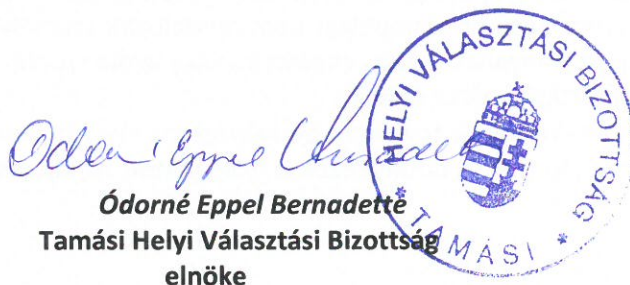 HELYI VÁLASZTÁSI BIZOTTSÁG
* TAMÁSI *
Ódorné Eppel Bernadette
Tamási Helyi Választási Bizottság
elnöke